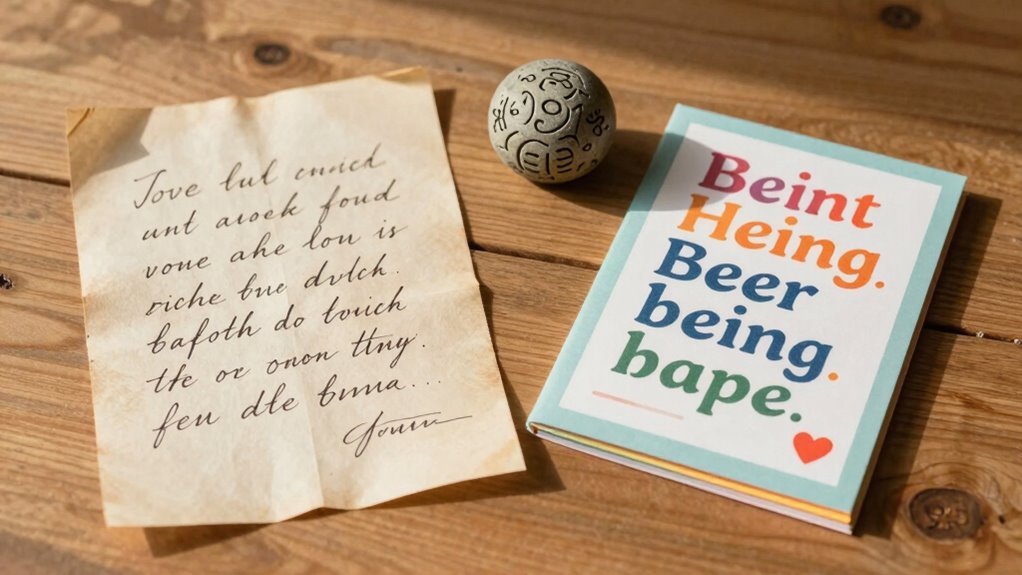 Jove lul cnnicd
unt aroek foud
voue ahe lou is
riche bue dvlch.
bafoth do touich
the or onon thny.
feu dle bnma...
Beint
Heing.
Beer
being.
bape.